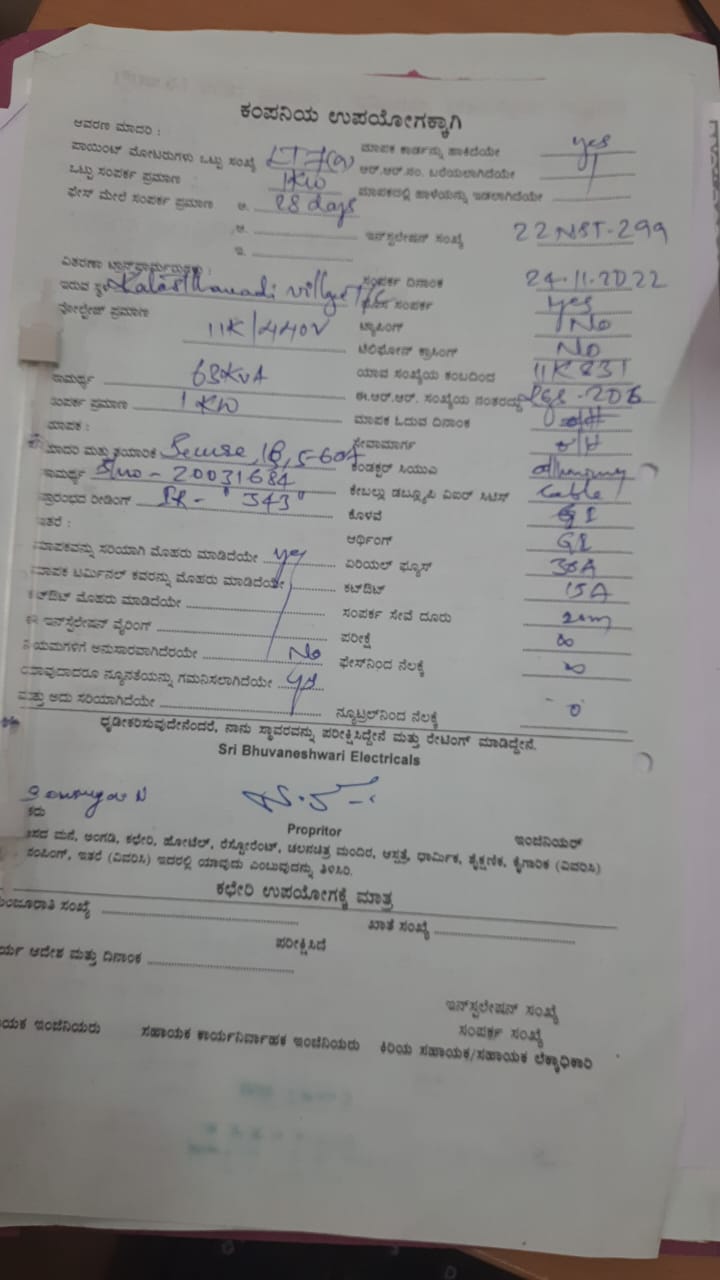 ಕಂಪನಿಯ ಉಪಯೋಗಕ್ಕಾಗಿ
ಆವರಣ ಮಾದರಿ : ಮಾಪಕ ಕಾರ್ಡನ್ನು ಹಾಕಿದೆಯೇ yes
ಪಾಯಿಂಟ್ ಮೋಟರುಗಳು ಒಟ್ಟು ಸಂಖ್ಯೆ LT7(a) ಆರ್.ಆರ್.ನಂ. ಬರೆಯಲಾಗಿದೆಯೇ
ಒಟ್ಟು ಸಂಪರ್ಕ ಪ್ರಮಾಣ : 1KW ಮಾಪಕದಲ್ಲಿ ಹಾಳೆಯನ್ನು ಇಡಲಾಗಿದೆಯೇ
ಫೇಸ್ ಮೇಲೆ ಸಂಪರ್ಕ ಪ್ರಮಾಣ ಅ. 28 days
ಆ. ಇನ್‌ಸ್ಟಲೇಷನ್ ಸಂಖ್ಯೆ 22NST-299
ಇ.
ವಿತರಣಾ ಟ್ರಾನ್ಸ್‌ಫಾರ್ಮರುಗಳು : ಸಂಪರ್ಕ ದಿನಾಂಕ 24-11-2022
ಇರುವ ಸ್ಥಳ ಸಂಪರ್ಕ yes
ವೋಲ್ಟೇಜ್ ಪ್ರಮಾಣ 11K/440V ಟ್ಯಾಪಿಂಗ್ No
ಟೆಲಿಫೋನ್ ಕ್ರಾಸಿಂಗ್ No
ಸಾಮರ್ಥ್ಯ 63KVA ಯಾವ ಸಂಖ್ಯೆಯ ಕಂಬದಿಂದ
ಸಂಪರ್ಕ ಪ್ರಮಾಣ 1KW ಈ.ಆರ್.ಆರ್. ಸಂಖ್ಯೆಯ ನಂತರದ್ದು
ಮಾಪಕ : ಮಾಪಕ ಓದುವ ದಿನಾಂಕ
ಮಾದರಿ ಮತ್ತು ತಯಾರಿಕೆ Secure, 1Φ, 5-60A ಸೇವಾಮಾರ್ಗ o/H
ಸಾಮರ್ಥ್ಯ Slno - 20031684 ಕಂಡಕ್ಟರ್ ಸಿಯುಎ
ಪ್ರಾರಂಭದ ರೀಡಿಂಗ್ "343" ಕೇಬಲ್ಲು ಡಬ್ಲ್ಯೂಪಿ ವಿಐಆರ್ ಸಿಟಿಸ್ Cable
ಕೊಳವೆ GI
ಇತರೆ : ಆರ್ಥಿಂಗ್ GI
ಮಾಪಕವನ್ನು ಸರಿಯಾಗಿ ಮೊಹರು ಮಾಡಿದೆಯೇ yes ಏರಿಯಲ್ ಫ್ಯೂಸ್ 30A
ಮಾಪಕ ಟರ್ಮಿನಲ್ ಕವರನ್ನು ಮೊಹರು ಮಾಡಿದೆಯೇ ಕಟ್‌ಔಟ್ 15A
ಕಟ್‌ಔಟ್ ಮೊಹರು ಮಾಡಿದೆಯೇ ಸಂಪರ್ಕ ಸೇವೆ ದೂರು 20m
ಈ ಇನ್‌ಸ್ಟಲೇಷನ್ ವೈರಿಂಗ್ ಪರೀಕ್ಷೆ ∞
ನಿಯಮಗಳಿಗೆ ಅನುಸಾರವಾಗಿದೆಯೇ No ಫೇಸ್‌ನಿಂದ ನೆಲಕ್ಕೆ ∞
ಯಾವುದಾದರೂ ನ್ಯೂನತೆಯನ್ನು ಗಮನಿಸಲಾಗಿದೆಯೇ yes
ಮತ್ತು ಅದು ಸರಿಯಾಗಿದೆಯೇ ನ್ಯೂಟ್ರಲ್‌ನಿಂದ ನೆಲಕ್ಕೆ 0
ಧೃಡೀಕರಿಸುವುದೇನೆಂದರೆ, ನಾನು ಸ್ಥಾವರವನ್ನು ಪರೀಕ್ಷಿಸಿದ್ದೇನೆ ಮತ್ತು ರೇಟಿಂಗ್ ಮಾಡಿದ್ದೇನೆ.
Sri Bhuvaneshwari Electricals
Propritor ಇಂಜಿನಿಯರ್
ಮನೆ, ಅಂಗಡಿ, ಕಛೇರಿ, ಹೋಟೆಲ್, ರೆಸ್ಟೋರೆಂಟ್, ಚಲನಚಿತ್ರ ಮಂದಿರ, ಆಸ್ಪತ್ರೆ, ಧಾರ್ಮಿಕ, ಶೈಕ್ಷಣಿಕ, ಕೈಗಾರಿಕ (ವಿವರಿಸಿ)
ಪಂಪಿಂಗ್, ಇತರೆ (ವಿವರಿಸಿ) ಇದರಲ್ಲಿ ಯಾವುದು ಎಂಬುವುದನ್ನು ತಿಳಿಸಿರಿ.
ಕಛೇರಿ ಉಪಯೋಗಕ್ಕೆ ಮಾತ್ರ
ಮಂಜೂರಾತಿ ಸಂಖ್ಯೆ ಖಾತೆ ಸಂಖ್ಯೆ
ಪರೀಕ್ಷಿಸಿದೆ
ಆದೇಶ ಮತ್ತು ದಿನಾಂಕ
ಇನ್‌ಸ್ಟಲೇಷನ್ ಸಂಖ್ಯೆ
ಸಂಪರ್ಕ ಸಂಖ್ಯೆ
ಇಂಜಿನಿಯರು ಸಹಾಯಕ ಕಾರ್ಯನಿರ್ವಾಹಕ ಇಂಜಿನಿಯರು ಕಿರಿಯ ಸಹಾಯಕ/ಸಹಾಯಕ ಲೆಕ್ಕಾಧಿಕಾರಿ